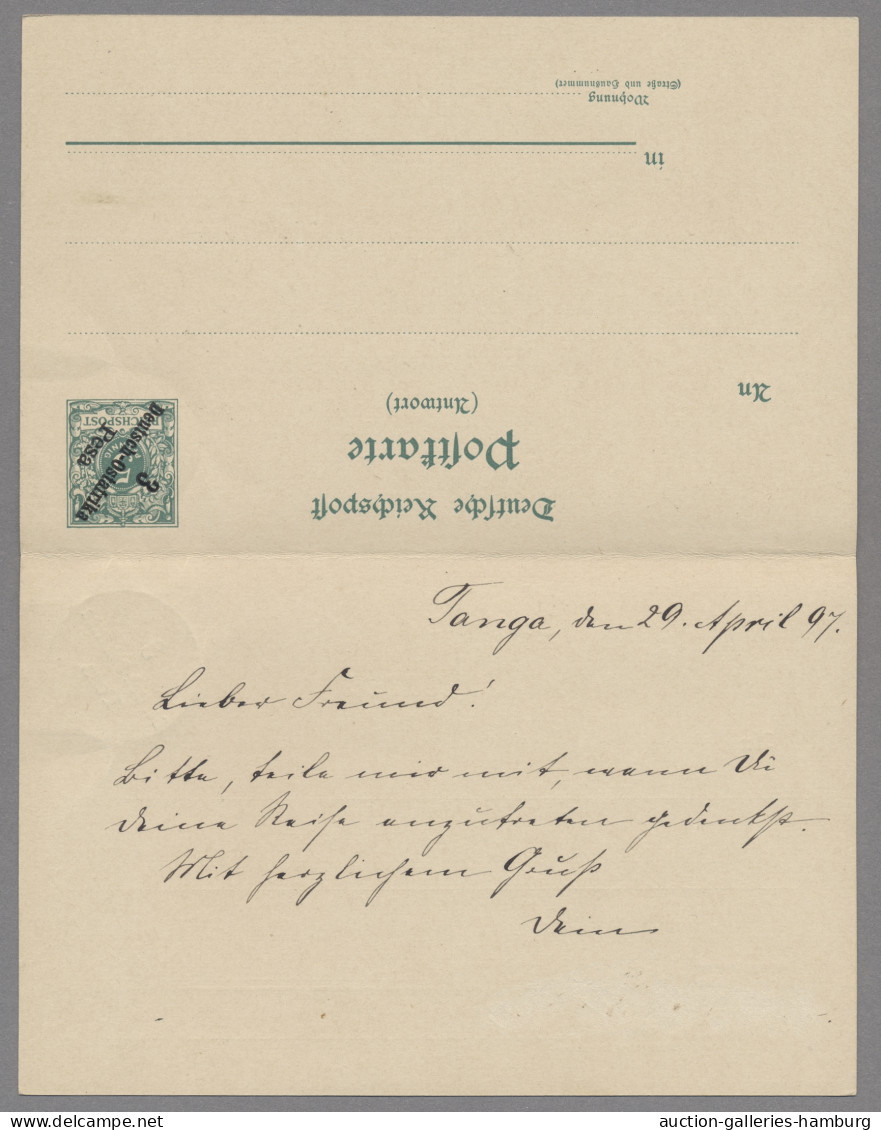 (Straße und Hausnummer)
Wohnung
in
An
(Antwort)
Postkarte
Deutsche Reichspost
REICHSPOST
Deutsch-Ostafrika
Pesa
3
Tanga, den 29. April 97.
Lieber Freund!
Bitte, teile mir mit, wann Du
deine Reise anzutreten gedenkst.
Mit herzlichem Gruß
Dein
auction-galleries-hamburg